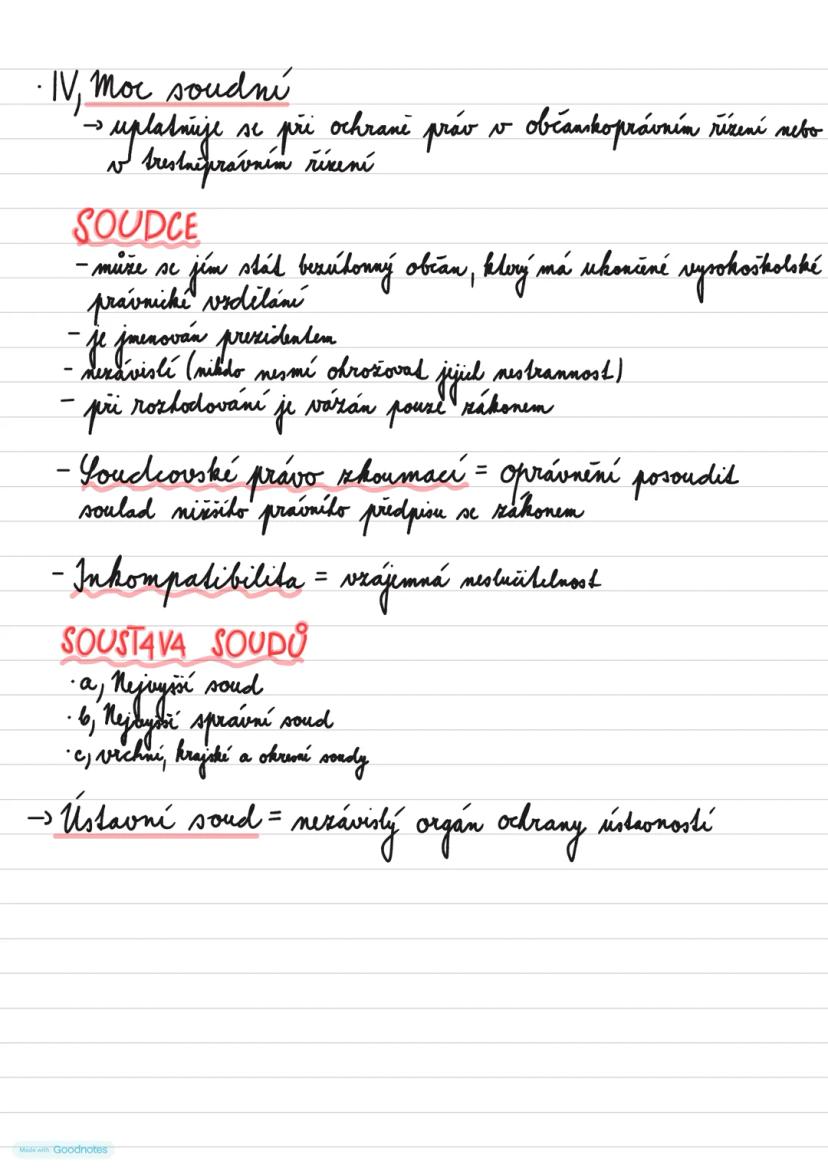 · IV, Moc soudní
→ uplatňuje se při ochraně práv v občanskoprávním řízení nebo
v trestněprávním řízení
SOUDCE
- může se jím stát bezúhonný občan, který má ukončené vysokoškolské
právnické vzdělání
- je jmenován prezidentem
- nezávislí (nikdo nesmí ohrožovat jejich nestrannost)
- při rozhodování je vázán pouze zákonem
- Soudcovské právo zkoumací = oprávnění posoudit
soulad nižšího právního předpisu se zákonem
- Inkompatibilita = vzájemná neslučitelnost
SOUSTAVA SOUDŮ
· a, Nejvyšší soud
· b, Nejvyšší správní soud
· c, vrchní, krajské a okresní soudy
→ Ústavní soud = nezávislý orgán ochrany ústavnosti
Made with Goodnotes